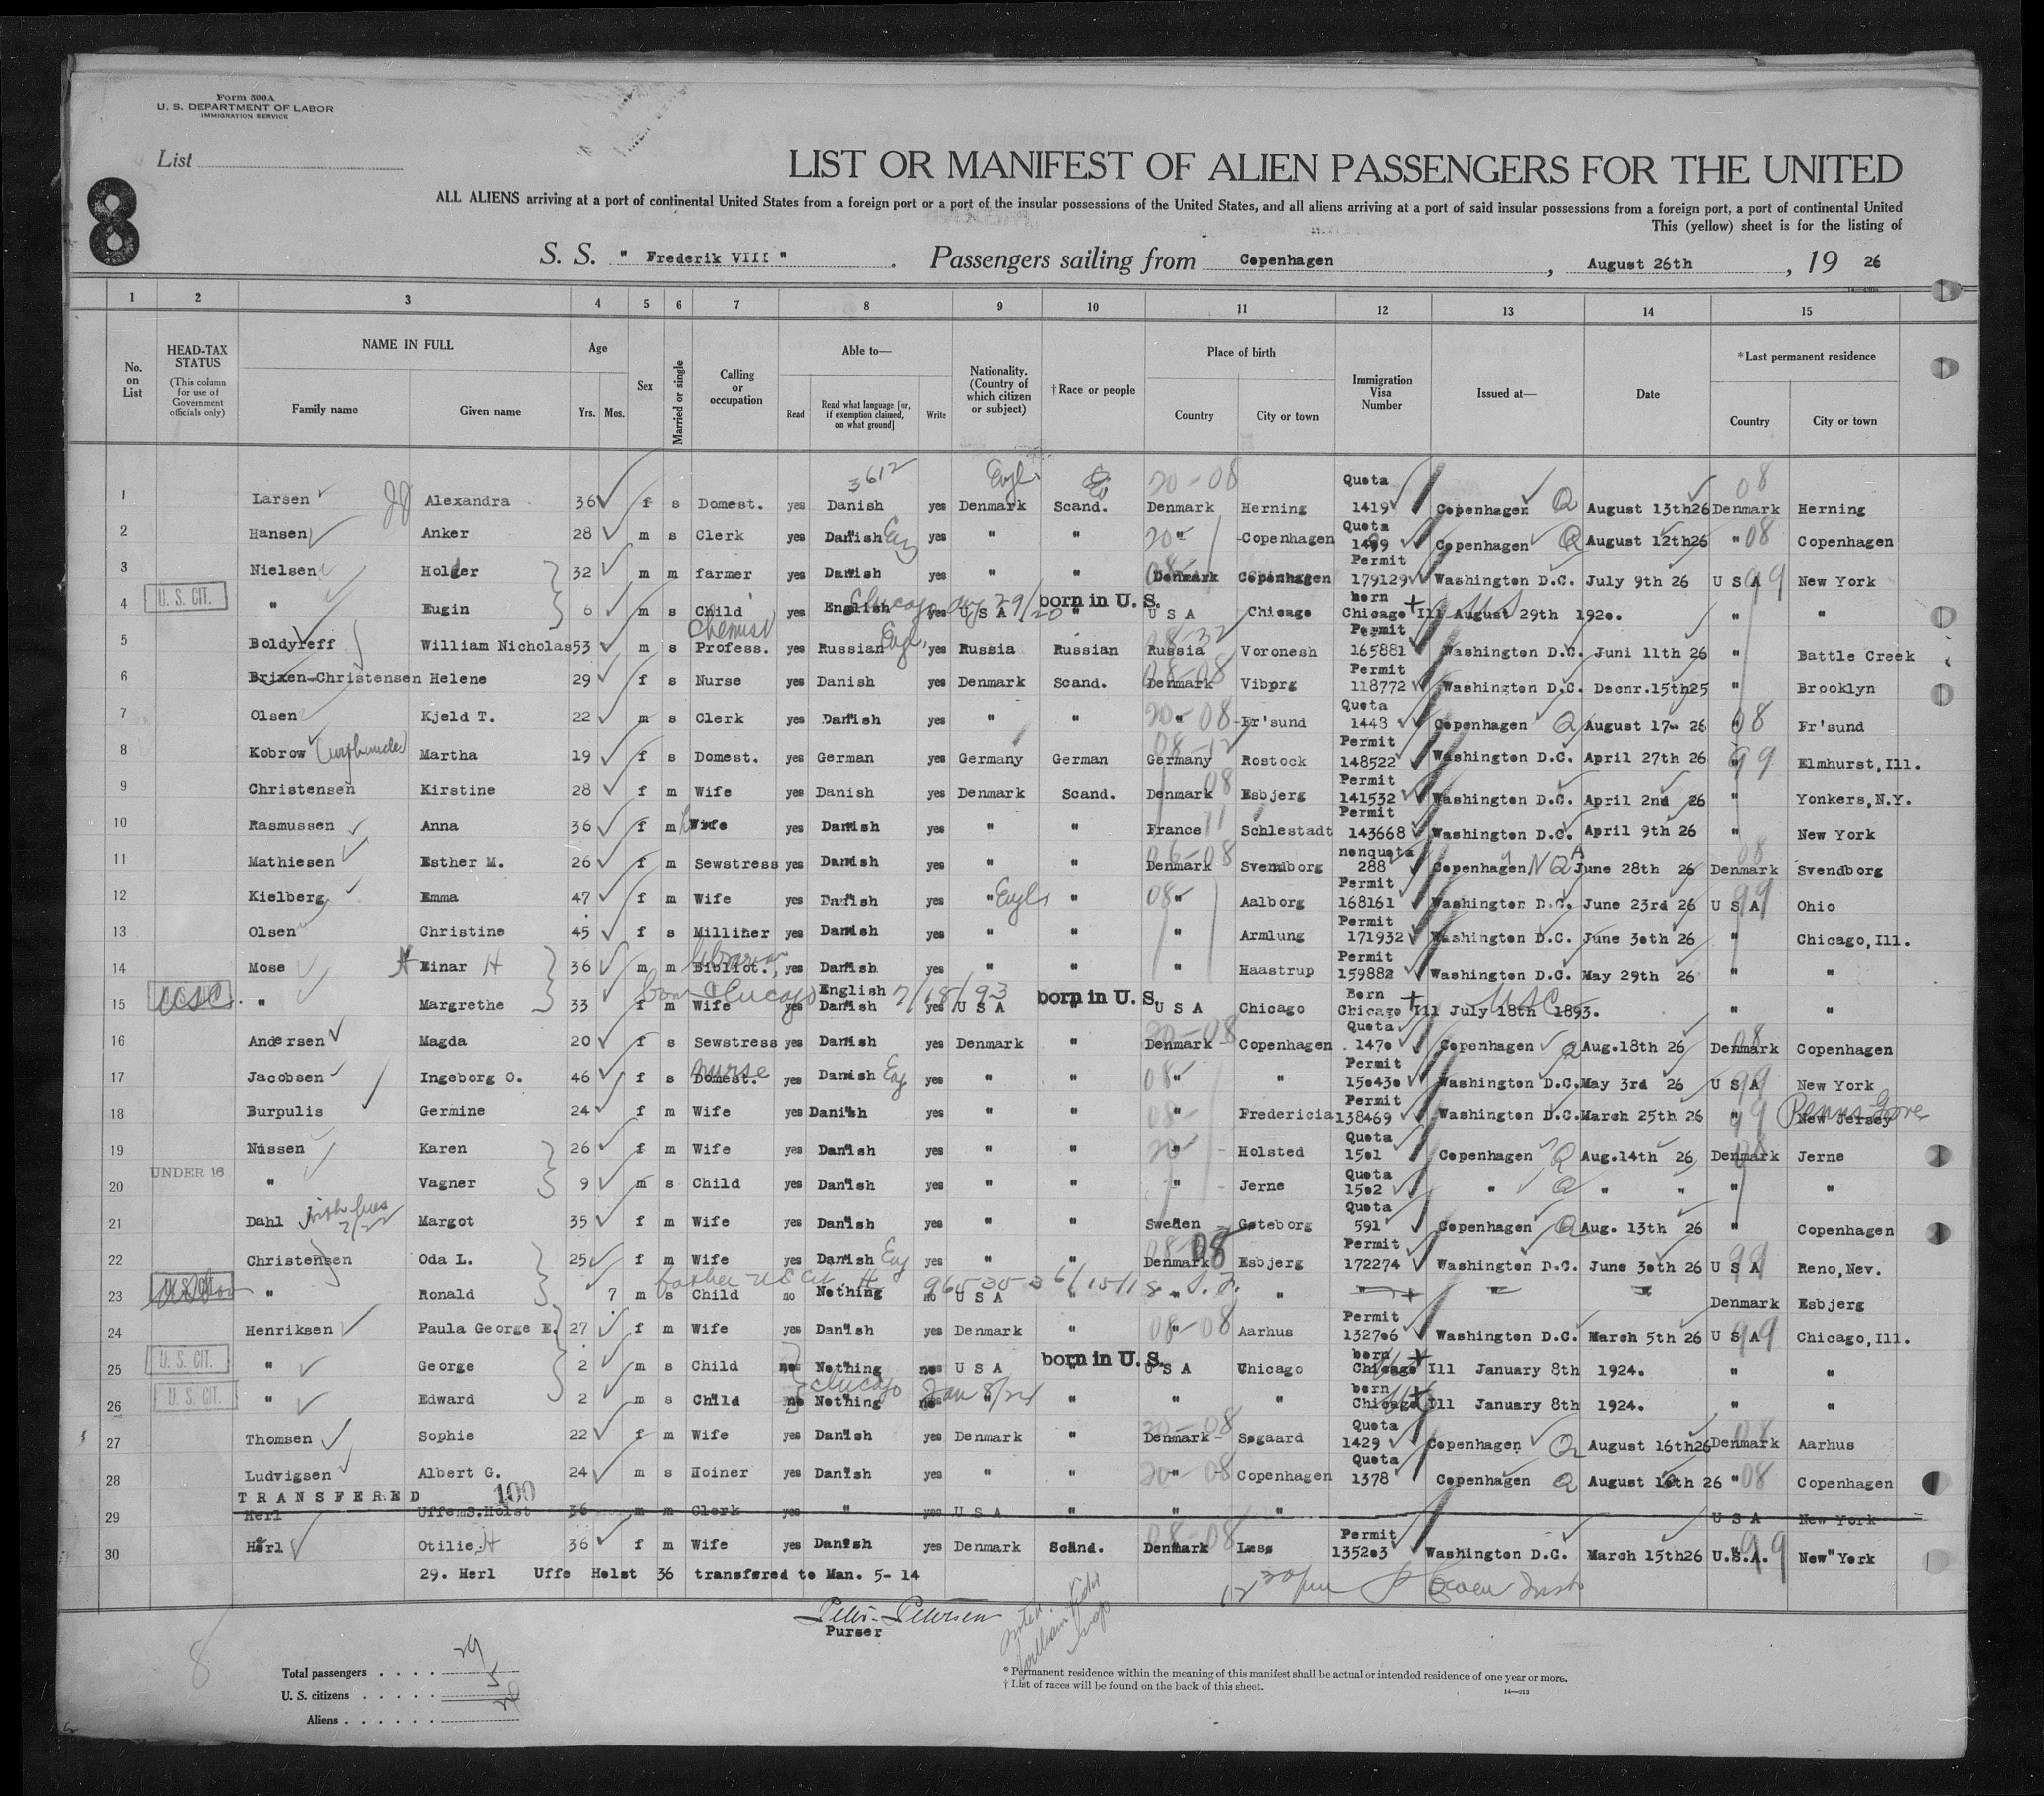 Form 500A
U. S. DEPARTMENT OF LABOR
IMMIGRATION SERVICE
List
8
LIST OR MANIFEST OF ALIEN PASSENGERS FOR THE UNITED
ALL ALIENS arriving at a port of continental United States from a foreign port or a port of the insular possessions of the United States, and all aliens arriving at a port of said insular possessions from a foreign port, a port of continental United
This (yellow) sheet is for the listing of
S. S. " Frederik VIII " . Passengers sailing from Copenhagen , August 26th , 19 26
1 2 3 4 5 6 7 8 9 10 11 12 13 14 15
No. on List
HEAD-TAX STATUS (This column for use of Government officials only)
NAME IN FULL
Family name Given name
Age
Yrs. Mos.
Sex
Married or single
Calling or occupation
Able to—
Read Read what language [or, if exemption claimed, on what ground] Write
Nationality. (Country of which citizen or subject)
†Race or people
Place of birth
Country City or town
Immigration Visa Number
Issued at—
Date
*Last permanent residence
Country City or town
3612 Engl. 20-08 Quota 08
1 Larsen Alexandra 36 f s Domest. yes Danish yes Denmark Scand. Denmark Herning 1419 Copenhagen Q August 13th26 Denmark Herning
Quota
2 Hansen Anker 28 m s Clerk yes Danish Eng yes " " 20 " Copenhagen 1499 Copenhagen Q August 12th26 " 08 Copenhagen
Permit
3 Nielsen Holger 32 m m farmer yes Danish yes " " Denmark Copenhagen 179129 Washington D.C. July 9th 26 U S A 99 New York
U. S. CIT. Chicago Aug 29/20 born in U. S. born
4 " Eugin 6 m s Child yes English yes U S A " U S A Chicago Chicago Ill August 29th 1920. " "
Chemist Permit
5 Boldyreff William Nicholas 53 m s Profess. yes Russian Engl. yes Russia Russian Russia Voronesh 165881 Washington D.C. Juni 11th 26 " Battle Creek
08-08 Permit
6 Brixen-Christensen Helene 29 f s Nurse yes Danish yes Denmark Scand. Denmark Viborg 118772 Washington D.C. Decnr.15th25 " Brooklyn
Quota
7 Olsen Kjeld T. 22 m s Clerk yes Danish yes " " 20-08 " Fr'sund 1448 Copenhagen Q August 17- 26 " 08 Fr'sund
08-12 Permit
8 Kobrow (with uncle) Martha 19 f s Domest. yes German yes Germany German Germany Rostock 148522 Washington D.C. April 27th 26 " 99 Elmhurst,Ill.
08 Permit
9 Christensen Kirstine 28 f m Wife yes Danish yes Denmark Scand. Denmark Esbjerg 141532 Washington D.C. April 2nd 26 " Yonkers,N.Y.
Permit
10 Rasmussen Anna 36 f m Wife yes Danish yes " " France 11 Schlestadt 143668 Washington D.C. April 9th 26 " New York
nonquota
11 Mathiesen Esther M. 26 f m Sewstress yes Danish yes " " Denmark Svendborg 288 Copenhagen NQ June 28th 26 Denmark Svendborg
Permit
12 Kielberg Emma 47 f m Wife yes Danish yes " Engl. " 08 " Aalborg 168161 Washington D.C. June 23rd 26 U S A 99 Ohio
Permit
13 Olsen Christine 45 f s Milliner yes Danish yes " " " Armlung 171932 Washington D.C. June 30th 26 " Chicago,Ill.
Librarian Permit
14 Mose Einar H 36 m m Bibliot. yes Danish yes " " " Haastrup 159882 Washington D.C. May 29th 26 " "
USC born Chicago English 7/18/93 born in U. S. Born USC
15 " Margrethe 33 f m Wife yes Danish yes U S A " U S A Chicago Chicago Ill July 18th 1893. " "
20-08 Quota 08
16 Andersen Magda 20 f s Sewstress yes Danish yes Denmark " Denmark Copenhagen 1470 Copenhagen Q Aug.18th 26 Denmark Copenhagen
nurse Permit
17 Jacobsen Ingeborg O. 46 f s Domest. yes Danish Eng yes " " 08 " " 150430 Washington D.C. May 3rd 26 U S A 99 New York
Permit Penns Grove
18 Burpulis Germine 24 f m Wife yes Danish yes " " 08 " Fredericia 138469 Washington D.C. March 25th 26 " 99 New Jersey
Quota
19 Nissen Karen 26 f m Wife yes Danish yes " " 20 " Holsted 1501 Copenhagen Q Aug.14th 26 Denmark 08 Jerne
UNDER 16 Quota
20 " Vagner 9 m s Child yes Danish yes " " " Jerne 1502 " Q " " " "
Quota
21 Dahl Margot 35 f m Wife yes Danish yes " " Sweden Gøteborg 591 Copenhagen Q Aug. 13th 26 " Copenhagen
08 Permit
22 Christensen Oda L. 25 f m Wife yes Danish Eng yes " " Denmark Esbjerg 172274 Washington D.C. June 30th 26 U S A 99 Reno,Nev.
father US Cit. 6/15/18
23 " Ronald 7 m s Child no Nothing no U S A " " " " " " Denmark Esbjerg
Permit
24 Henriksen Paula George E. 27 f m Wife yes Danish yes Denmark " 08-08 " Aarhus 132706 Washington D.C. March 5th 26 U S A 99 Chicago,Ill.
U. S. CIT. born in U. S. born
25 " George 2 m s Child no Nothing no U S A " U S A Chicago Chicago Ill January 8th 1924. " "
U. S. CIT. Chicago Jan 8/24 born
26 " Edward 2 m s Child no Nothing no " " " " Chicago Ill January 8th 1924. " "
20-08 Quota 08
27 Thomsen Sophie 22 f m Wife yes Danish yes Denmark " Denmark Søgaard 1429 Copenhagen Q August 16th26 Denmark Aarhus
Quota
28 Ludvigsen Albert G. 24 m s Hoiner yes Danish yes " " 20-08 " Copenhagen 1378 Copenhagen Q August 10th 26 " 08 Copenhagen
TRANSFERED 100
29 Herl Uffe S.Holst 36 m m Clerk yes " yes U S A " " " U S A New York
08-08 Permit
30 Herl Otilie H 36 f m Wife yes Danish yes Denmark Scand. Denmark Læsø 135203 Washington D.C. March 15th26 U.S.A. 99 New York
29. Herl Uffe Holst 36 transfered to Man. 5- 14
12 30 pm
Peter Petersen
Purser
8
Total passengers . . . . 29
U. S. citizens . . . . . 5
Aliens . . . . . . 24
* Permanent residence within the meaning of this manifest shall be actual or intended residence of one year or more.
† List of races will be found on the back of this sheet.
14—213